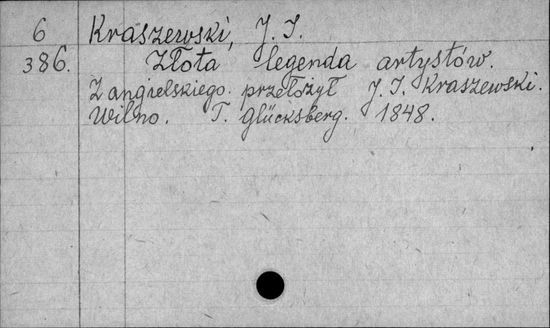 6 Kraszewski, J. I.
386. Złota legenda artystów.
Z angielskiego. przełożył J. I. Kraszewski.
Wilno. T. Glücksberg. 1848.